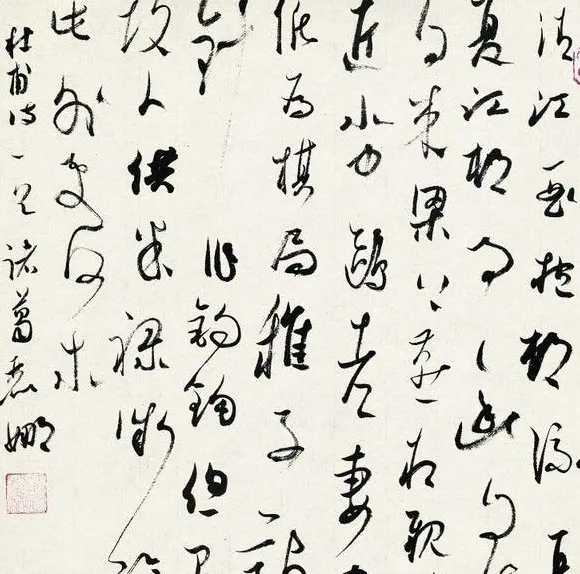 清江一曲抱村流
夏江村事事幽自
自来梁上燕相親
近水中鷗老妻
紙为棋局稚子敲
針作釣鉤但有
故人供米祿微
此外更何求
杜甫诗一首 诸葛娜